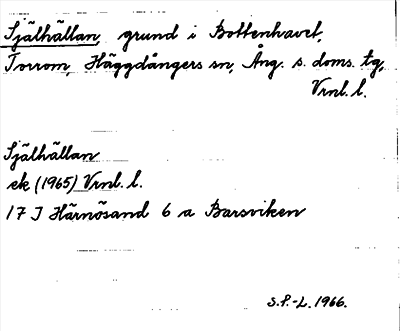 Själhällan, grund i Bottenhavet,
Torrom, Häggdångers sn, Ång. s. doms. tg,
Vrnl. l.
Själhällan
ek (1965) Vrnl. l.
17 J Härnösand 6 a Barsviken
S.P.-L. 1966.